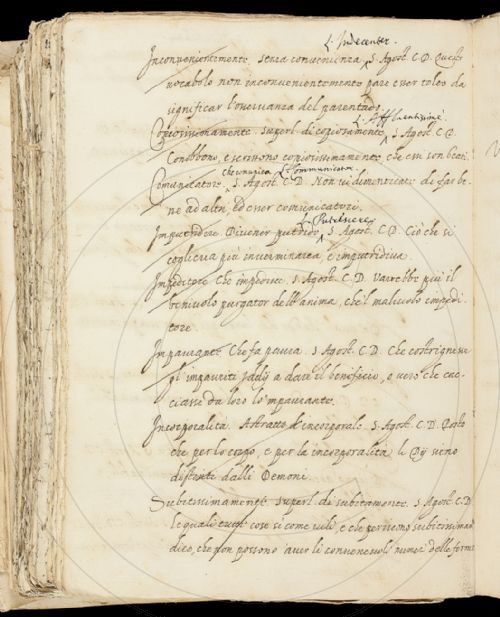 L. Indecenter.
Inconvenientemente. senza convenienza. S. Agost. C. D. Questo
vocabolo non inconvenientemente pare esser tolto da
significar l'osservanza del parentado.
L. Affluentissimè.
Copiosissimamente. superl. di copiosamente. S. Agost. C. D.
Conobbono, e scrissono copiosissimamente, che essi son beati.
Che comunica. L. Communicator.
Comunicatore. S. Agost. C. D. Non vi dimenticate di far be-
ne ad altri, ed esser comunicatori.
L. Putrescere.
Imputridire. Divenir putrido. S. Agost. C. D. Ciò che si
più inverminava, e imputridiva.
Impeditore. Che impedisce. S. Agost. C. D. Varrebbe più il
benivolo purgator dell'anima, che'l malivolo impedi-
tore
Impaurante. Che fa paura. S. Agost. C. D. Che costrignesse
gl'impauriti Iddij a dare il beneficio, o vero che cac-
ciasse da loro lo'mpaurante.
Incorporalità. Astratto d'incorporale. S. Agost. C. D. Posto
che per lo luogo, e per la incorporalità li Dij sieno
distanti dalli Demoni
Subitissimamente. superl. di subitamente. S. Agost. C. D.
le quali tutte cose si come vili, e che periscono subitissimamen
dico, che non possono aver li convenevoli numeri delle forme